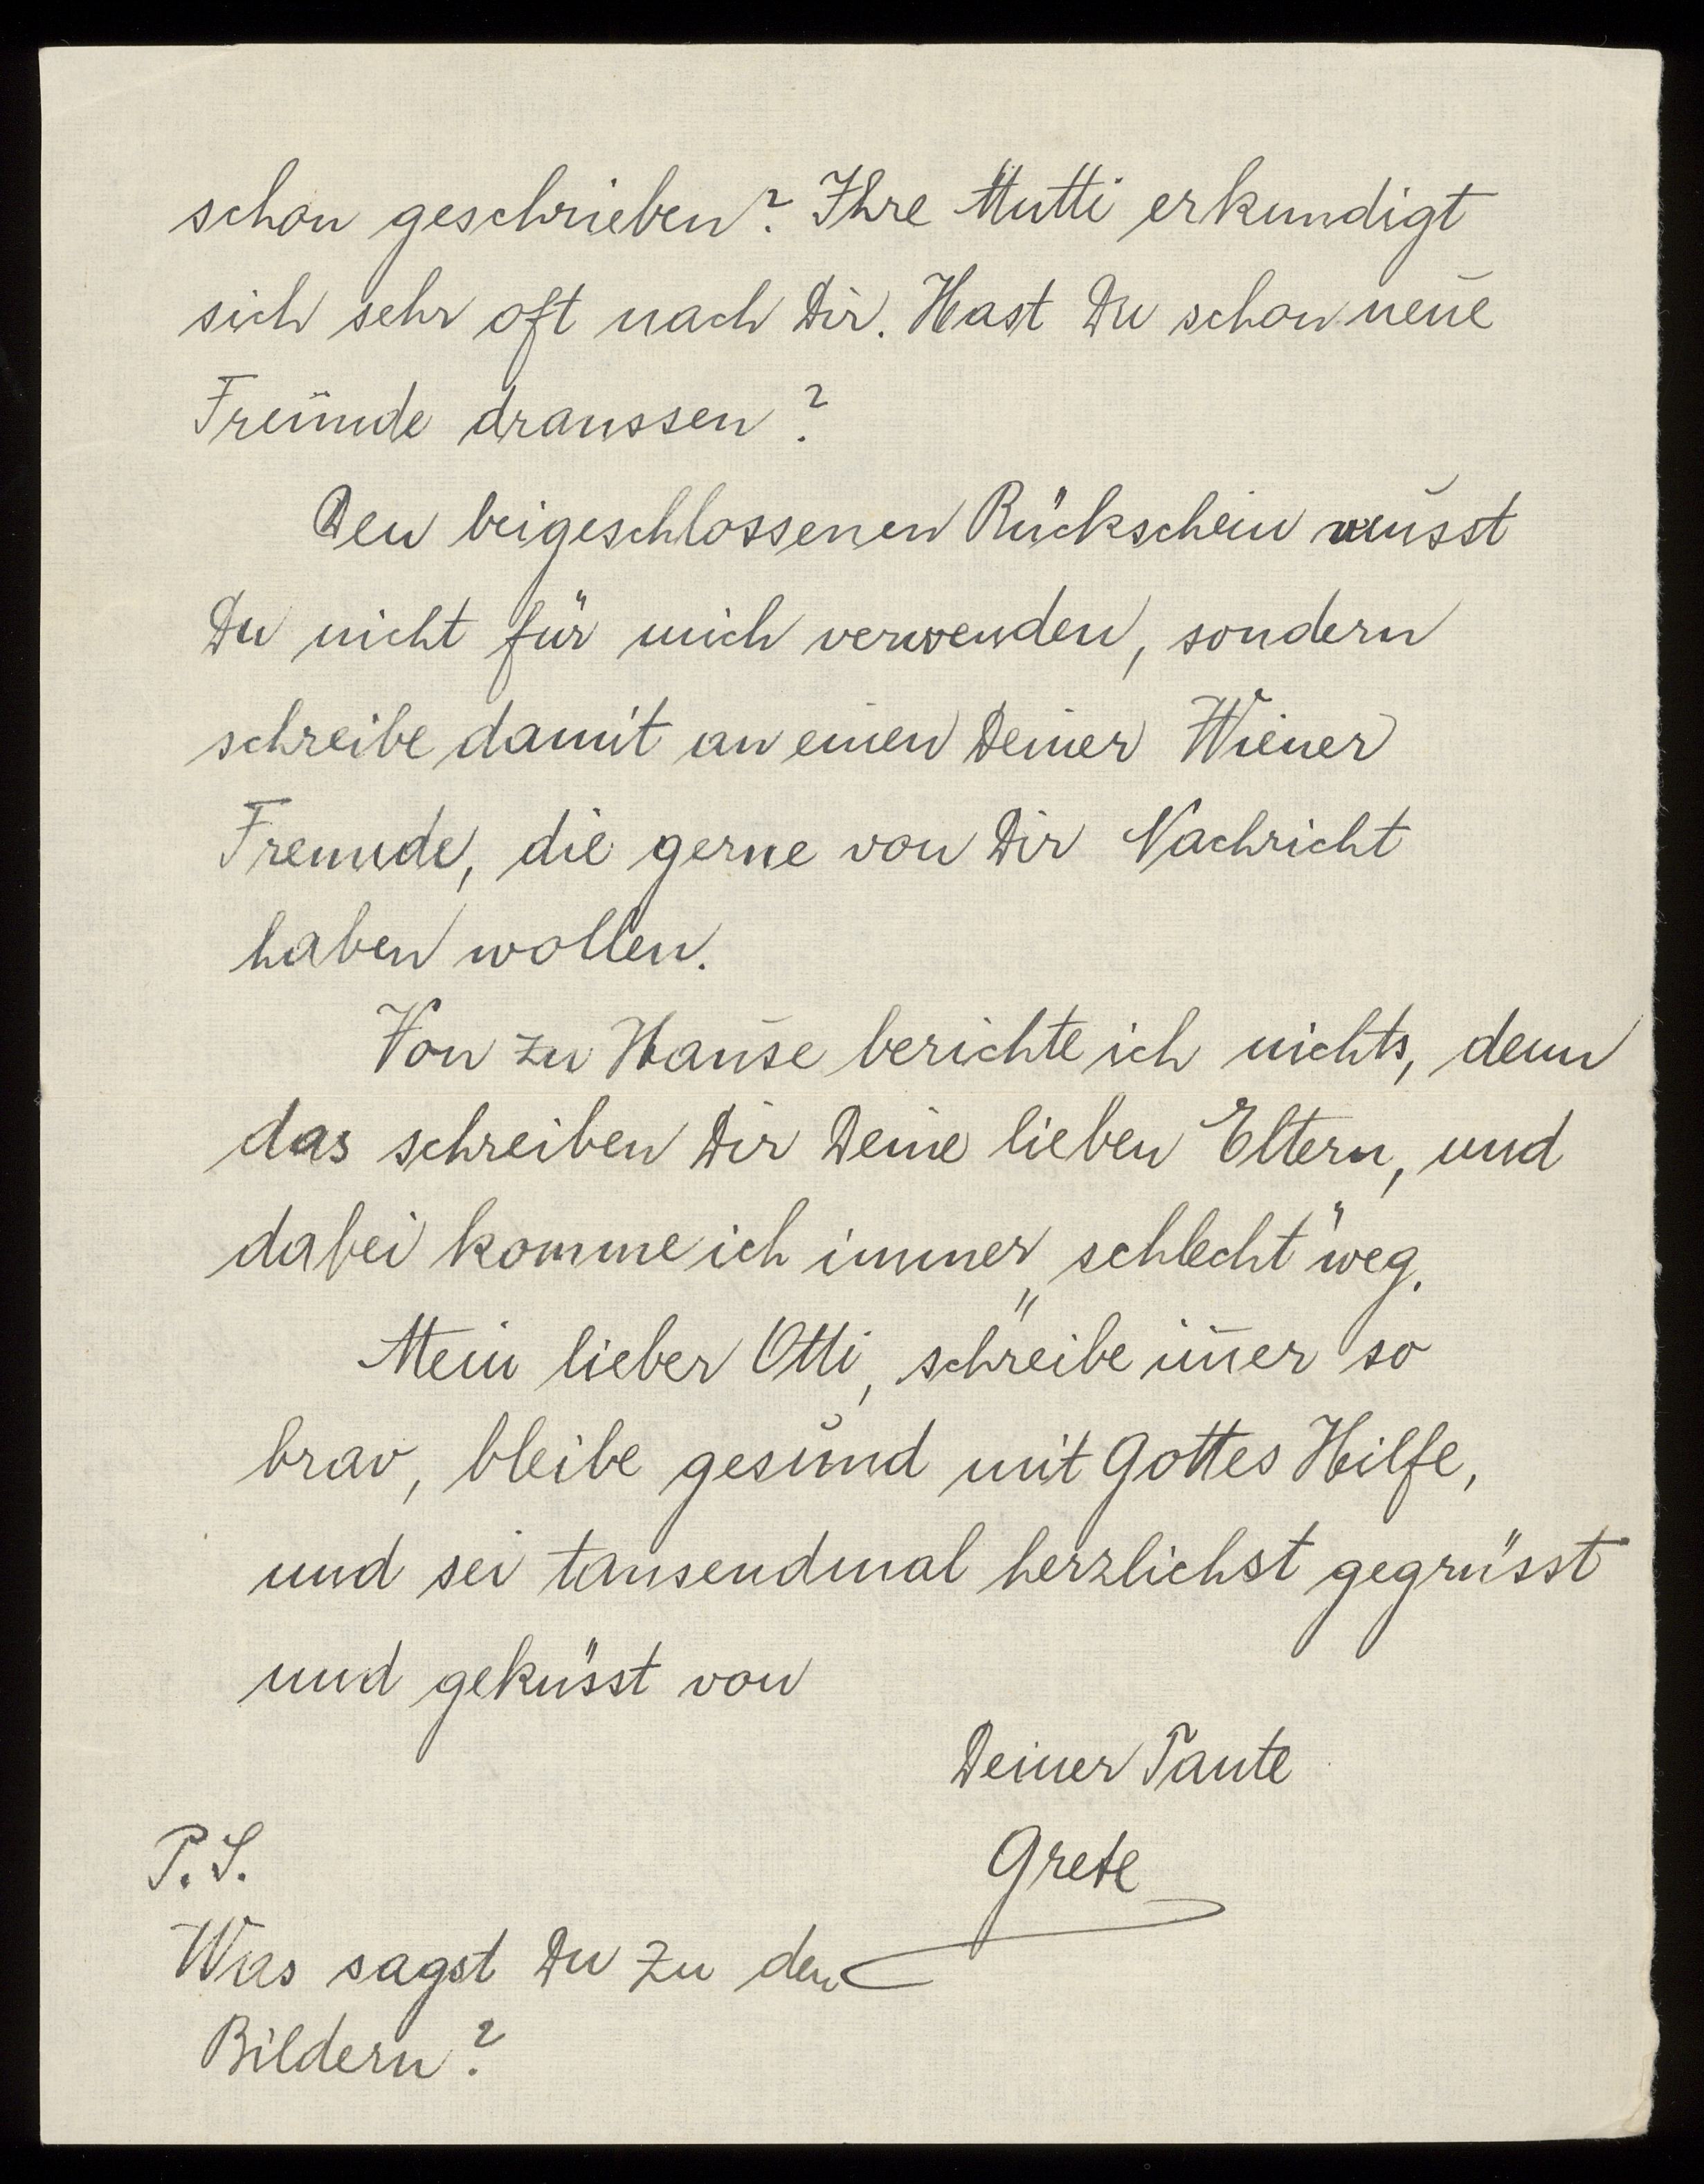 schon geschrieben? Ihre Mutti erkundigt
sich sehr oft nach Dir. Hast Du schon neue
Freunde draussen?
Den beigeschlossenen Rückschein musst
Du nicht für mich verwenden, sondern
schreibe damit an einen Deiner Wiener
Freunde, die gerne von Dir Nachricht
haben wollen.
Von zu Hause berichte ich nichts, denn
das schreiben Dir Deine lieben Eltern, und
dabei komme ich immer „schlecht" weg.
Mein lieber Otti, schreibe im̄er so
brav, bleibe gesund mit Gottes Hilfe,
und sei tausendmal herzlichst gegrüsst
und geküsst von
Deiner Tante
Grete
P.S.
Was sagst Du zu den
Bildern?